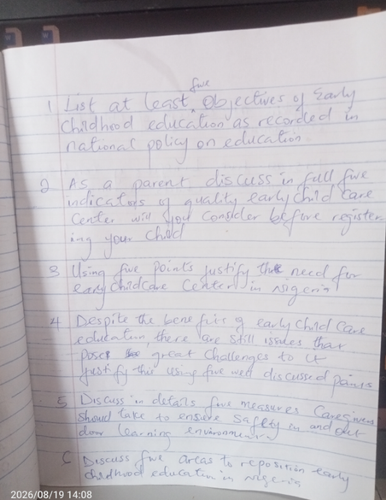 five
1 List at least Objectives of Early
childhood education as recorded in
national policy on education.
2 As a parent discuss in full five
indicators of quality early child care
Center will you consider before register
ing your child
3 Using five points justify the need for
early childcare Center in nigeria
4 Despite the benefits of early child care
education, there are still issues that
poses great challenges to it
justify this using five well discussed points
5 Discuss in details five measures Caregivers
should take to ensure safety in and out
door learning environment
6 Discuss five areas to reposition early
childhood education in nigeria
2026/08/19 14:08